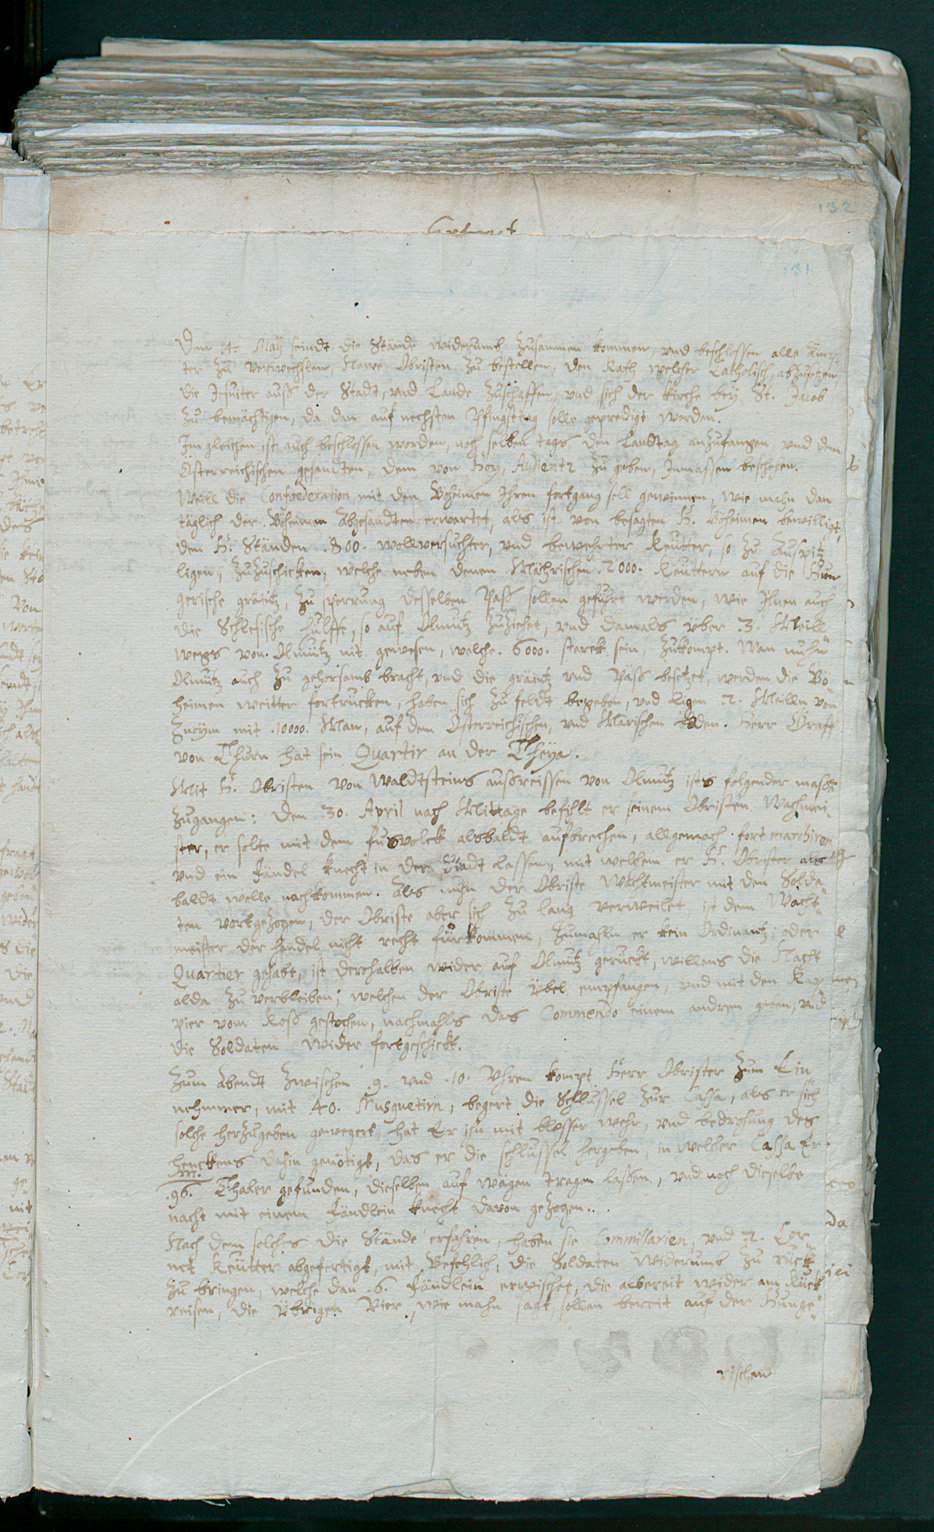 132
131
Den 4. Maij seindt die Ständt widerumb zusammen kommen, und beschlossen alle Ämp-
ter zu verwechslen, Newe Obristen zu bestellen, den Rath welcher Catholisch, abzusezen
die Jesuiter auß der Stadt, und Lande zuschaffen, und sich der Kirche bey St. Jacob
zu bemächtigen, da dan auf nechsten Pfingsttag solle gepredigt werden.
Im gleichen ist auch beschlossen worden, noch selben tags den Landtag anzufangen, und dem
Österreichischen gesandten, dem von Hoy, Audientz zu geben, Inmassen beschehen.
Weill die Confoederation mit den Böheimen Ihren fortgang soll gewinnen, wie mahn dan
täglich der Böheimen Abgesandten erwartet, als ist von besagten H. Böheimen bewilligt,
den H. Ständen 800. wollversuchter, und bewehrter Reütter, so zu Auspitz
ligen, zuzuschicken, welche neben denen Mährischen 2000. Reüttern auf die Hun-
gerische gränitz, zu sperrung desselben Paß sollen geführt werden, wie Ihnen auch
die Schlesische hülffe, so auf Olmütz zuziehet, und damals uber 3. Meill
wegs von Olmütz nit gewesen, welche 6000. starck sein, zukompt. Wan nuhn
Olmütz auch zu gehorsamb bracht, und die gränitz und Päß besetzt, werden die Bö-
heimen weitter fortrucken, haben sich zu feldt begeben, und ligen 2. Meillen von
Znoÿm mit 10000. Man, auf dem Österreichischen, und Märischen Boden. Herr Graff
von Thurn hat sein Quartir an der Theÿa.
Mit H. Obristen von Waldtsteins außreissen von Olmütz ists folgender massen
zugangen: Den 30. April nach Mittage befihlt er seinem Obristen Wachmei-
ster, er solte mit dem fusvolck alsbaldt aufbrechen, allgemach fort marchiren
und ein fändel Knecht in der Stadt lassen, mit welchem er H. Obrister als-
baldt welle nachkommen. Als nuhn der Obriste Wachtmeister mit den Solda-
ten vortgezogen, der Obriste aber sich zu lang verweilet, ist dem Wacht-
meister der handel nicht recht fürkommen, zumaln er kein Ordinantz, oder
Quartier gehabt, ist derohalben wider auf Olmütz geruckt, willens die Nacht
alda zu verbleiben; welchen der Obriste übel empfangen, und mit den Rap-
pier vom Roß gestochen, nachmahls das Commendo einem andren geben, und
die Soldaten wider fortgeschickt.
Zum Abendt zwischen 9. und 10. Uhren kompt Herr Obrister zum Ein-
nehmmer, mit 40. Musquetirn, begert die Schlüssel zur Cassa, als er sich
solche herzugeben gewegert, hat Er ihn mit blosser wehr, und bedrohung des
henckens dahin genötigt, das er die schlüssel hergeben, in welcher Cassa Er
96. Thaler gefunden, dieselben auf wagen tragen lassen, und noch dieselbe
nacht mit einem fändlein Knecht davon gezogen.
Nach dem solches die Stände erfahren, haben sie Commissarien, und 2. Cor-
net Reütter abgefertigt, mit befehlich, die Soldaten widerumb zu rück
zu bringen, welche dan 6. fändlein erwischet, die albereit wider am Rück
reisen, die übrigen Vier, wie mahn sagt, sollen bereit auf der Hunge-
rischen